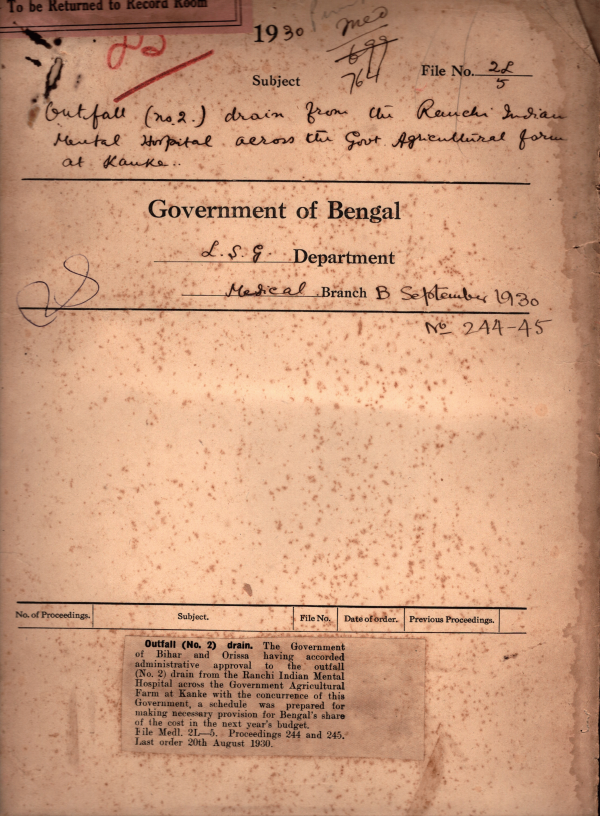 To be Returned to Record Room
1930
Med
699
764
Subject
File No. 2L/5
Outfall (no 2.) drain from the Ranchi Indian
Mental Hospital across the Govt Agricultural farm
at Kanke.
Government of Bengal
L. S. G. Department
Medical Branch B September 1930
No 244-45
No. of Proceedings. Subject. File No. Date of order. Previous Proceedings.
Outfall (No. 2) drain. The Government
of Bihar and Orissa having accorded
administrative approval to the outfall
(No. 2) drain from the Ranchi Indian Mental
Hospital across the Government Agricultural
Farm at Kanke with the concurrence of this
Government, a schedule was prepared for
making necessary provision for Bengal's share
of the cost in the next year's budget.
File Medl. 2L—5. Proceedings 244 and 245.
Last order 20th August 1930.